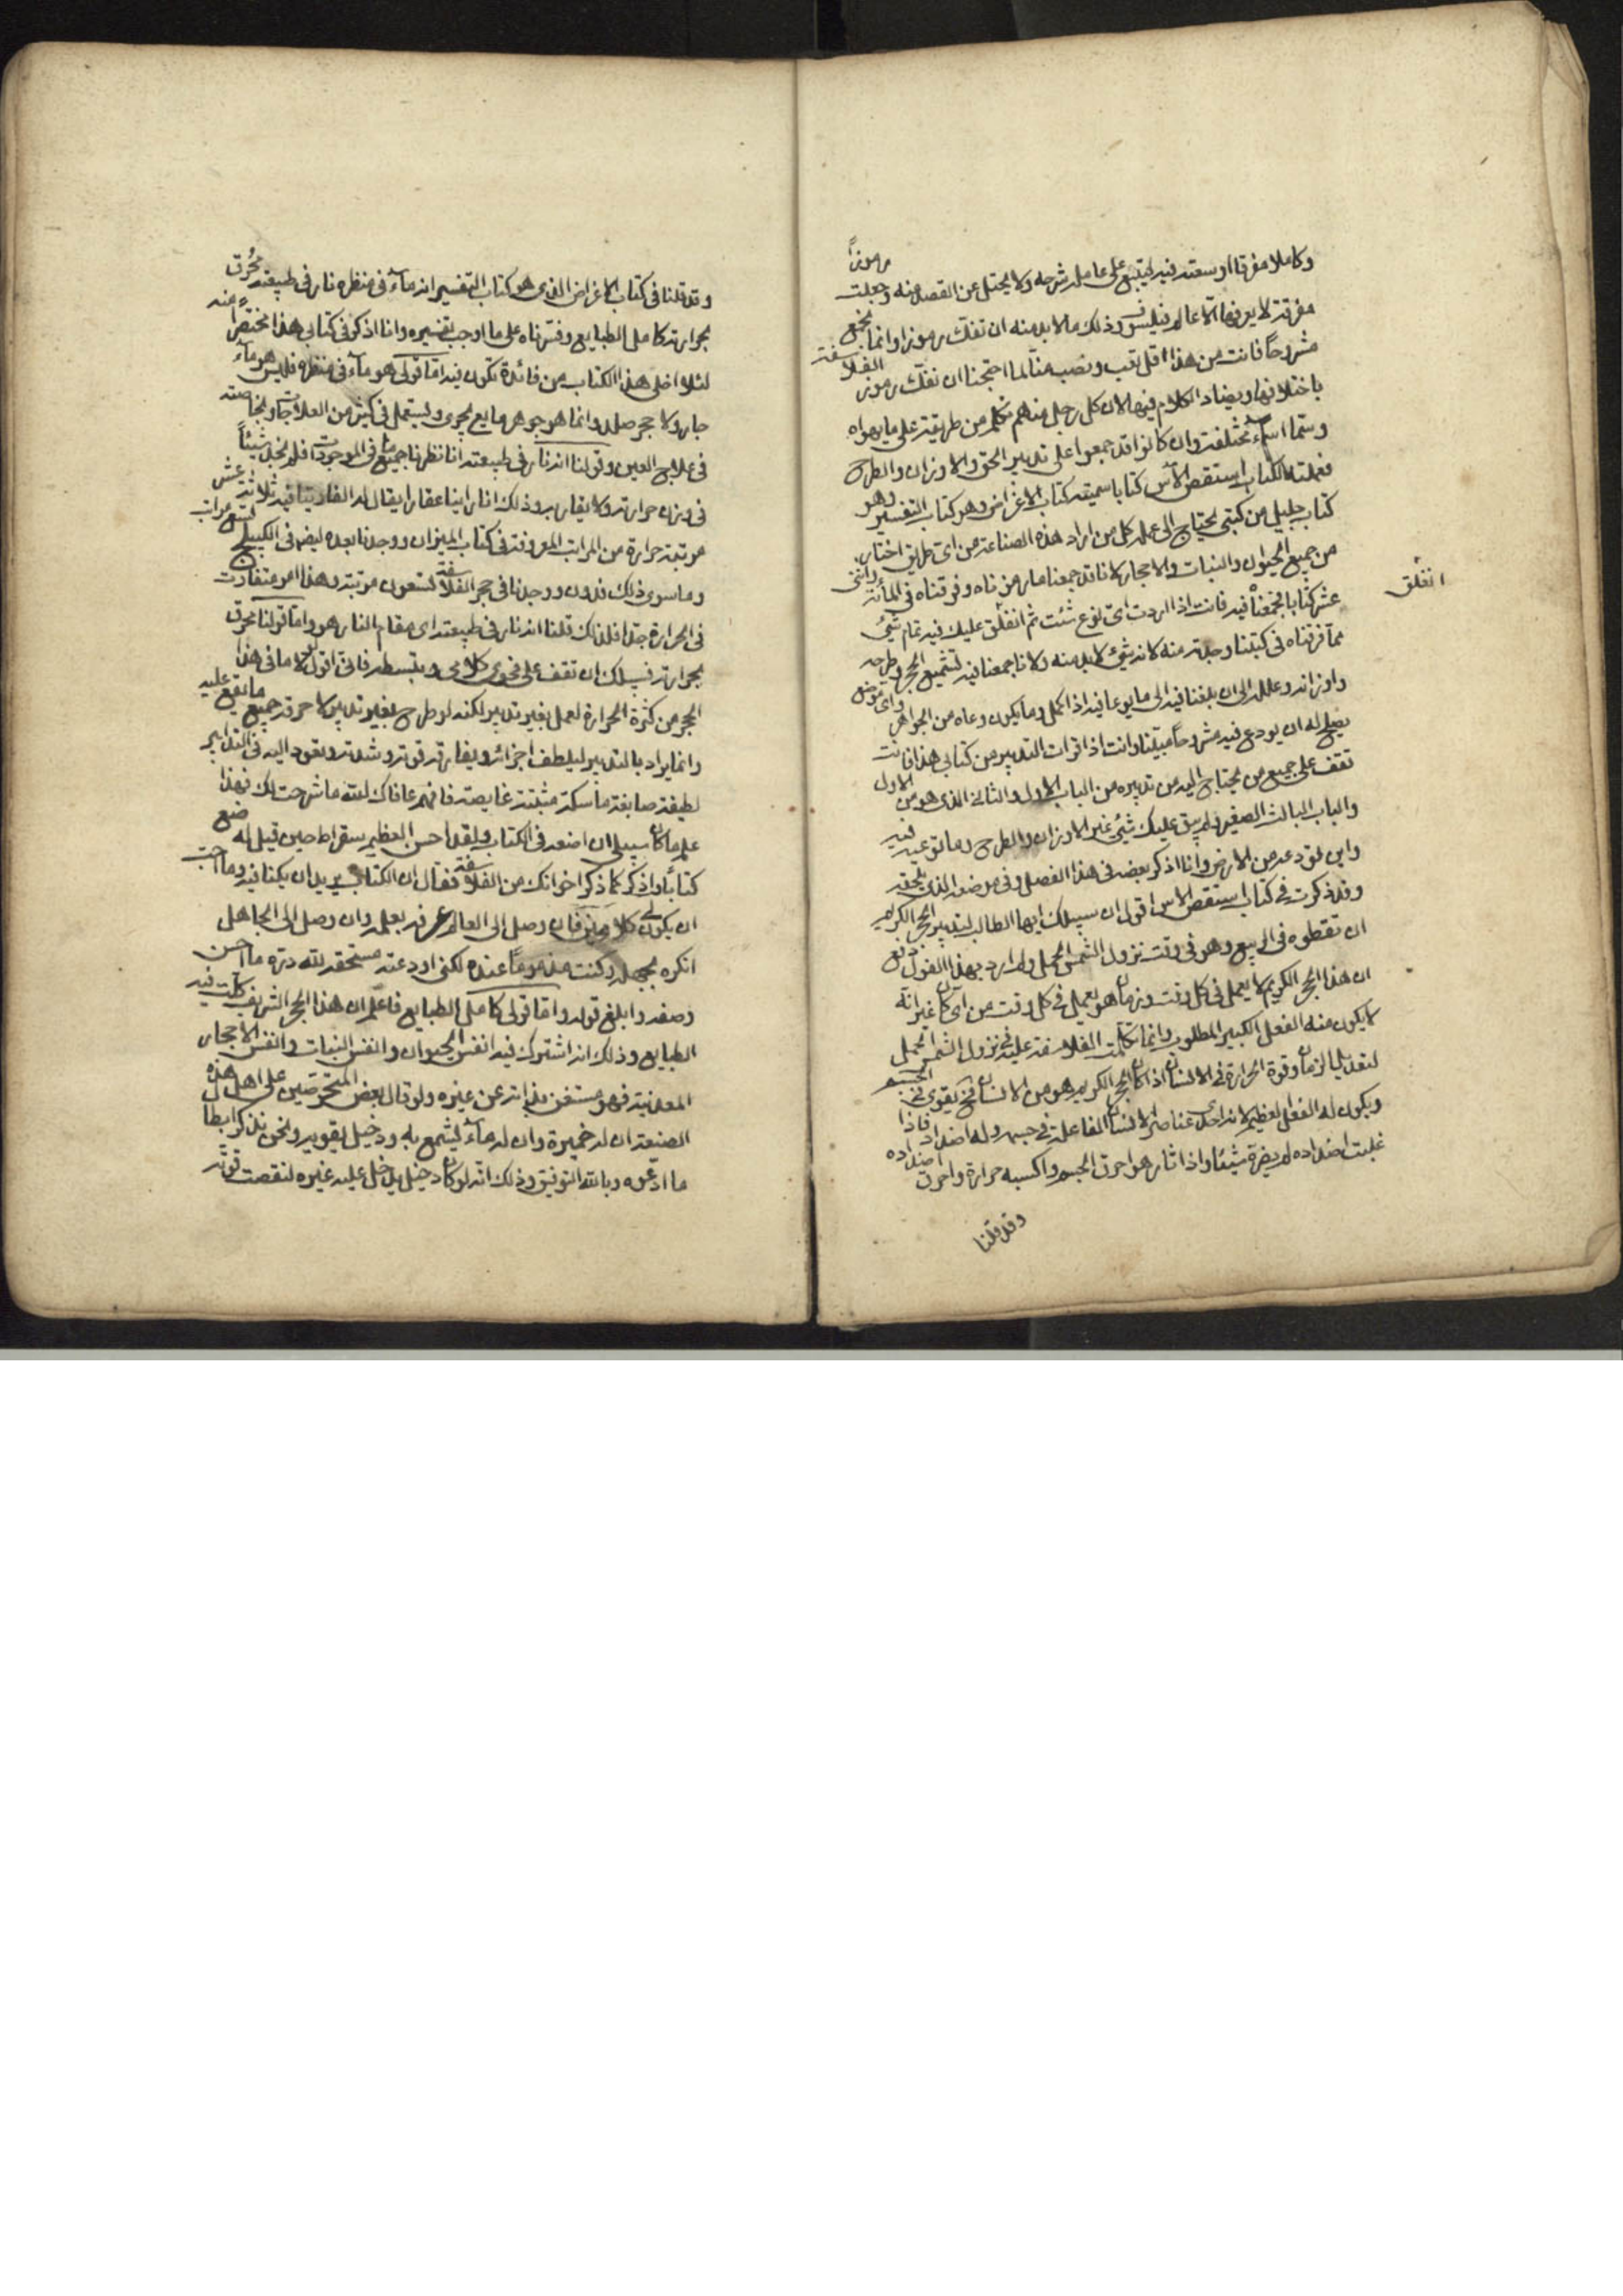 وكاملا مفرقا اوسعته فيه ليتبع على عامله شرحه ولا يختل عن القصد منه وجعلت رموزاً
مفرقة لا يعرفها الا عالم فيلسوف وذلك مالا بد منه ان تفك رموزا وانما نجمع
مشروحاً فانت من هذا اقل تعب ونصب منا لما احتجنا ان نفك رموز الفلاسفة
باختلافها ويضاد الكلام فيها لان كل رجل منهم تكلم من طريقة على ما يهواه
وسمّا اسماء مختلفة وان كانوا قد جمعوا على تدبير الحق والاوزان والطرح
فعملت لكتاب استقص الأس كتابا سميته كتاب الاغراض وهو كتاب التفسير وهو
كتاب جليل من كتبى يحتاج الى عمله كل من اراد هذه الصناعة من اى طريق اختار
من جميع الحيوان والنبات والاحجار لانا قد جمعنا ما رمزناه وفرقناه في المائة واثنى
عشر كتابا فجمعناه فيه فانت اذا اردت اى نوع شئت ثم انغلق عليك فيه تمام شئ
انغلق
مما فرقناه فى كتبنا وجدته منه لانه شئ لا بد منه ولانا جمعنا فيه لتتميم الحجر وطرحه
واوزانه وعلله الى ان بلغنا فيه الى ما يوعا فيه اذا كمل وما يكون وعاه من الجواهر واى موضع
يصلح له ان يودع فيه مشروحاً مبيّنا وانت اذا قرات التدبير من كتابى هذا فانت
تقف على جميع من يحتاج اليه من تدبيره من الباب الاول والثانى الذى هو من الاول
والباب الثالث الصغير ولم يبق عليك شئ غير الاوزان والطرح وما توعيه فيه
واين تودعه من الارض وانا اذكر بعضه فى هذا الفصل وفى موضعه الذى يلحقه
وقد ذكرت فى كتاب استقص الاس اقول ان سبيلك ايها الطالب لتدبير الحجر الكريم
ان تقطره فى الربيع وهو فى وقت نزول الشمس الحمل ولم ارد بهذا القول دفع
ان هذا الحجر الكريم لا يعمل فى كل وقت وزمان هو يعمل فى كل وقت من اى كان غير انّه
لا يكون منه الفعل الكبير المطلوب وانما تكلمت الفلاسفة عليه فى نزول الشمس الحمل
لتعديل الزمان وقوة الحرارة فى الانسان اذا كان الحجر الكريم هو من الانسان فيقوى فى الجسم
ويكون له الفعل العظيم لانه احد عناصر الانسان الفاعلة فى جسمه وله اضداد فاذا
غلبت اضداده لم يضرة شيئا واذا ثار هو احرق الجسم واكسبه حرارة واحرق اضداده
وقد قلنا
وقد قلنا فى كتاب الاغراض الذى هو كتاب التفسير انه ماءٌ فى منظره نار فى طبيعته مُحرق
بحرارته كامل الطبايع وفسّرناه على ما اوجب تفسيره وانا اذكر فى كتابى هذا مختصراً منه
لئلا اخلى هذا الكتاب من فائدة تكون فيه اما قولى هو ماءٌ فى منظره فليس هو ماءٌ
جار ولا حجر صلد وانما هو جوهر مايع يجرى ويستعمل فى كثير من العلاجات وبخاصته
فى علاج العين وقولنا انه نار فى طبيعته انا نظرنا جميع ما فى الموجودات فلم نجد شيئاً
فى وزن حرارته ولا يقاربه وذلك انا راينا عقارا يقال له الفاربيتا فيه ثلاثة عشر
مرتبة حرارة من المراتب المعروفة فى كتاب الميزان ووجدنا بعده ايضا فى الكبسلج تسع مراتب
وما سوى ذلك فدون ووجدنا فى حجر الفلاسفة تسعون مرتبة وهذا امر متفاوت
فى الحرارة جدا فلذلك قلنا انه نار فى طبيعته اى مقام النار هو واما قولنا محرق
بحرارته فسبيلك ان تقف على فحوى كلامى وبتبسطه فانى اقول لك ما فى هذا
الحجر من كثرة الحرارة لعمل بغير تدبير لكنه لو طرح بغير تدبير لاحرق جميع ما يقع عليه
وانما يراد بالتدبير ليلطف اجزائه ويفارقه قوته وشدته وتعود اليه فى التدابير
لطيفة صابغة ماسكة مثبتة غايصة فافهم عافاك الله ما شرحت لك فهذا
علم ما كان سبيلى ان اضعه فى الكتاب ولقد احسن العظيم سقراط حين قيل له ضع
كتاباً واذكر كما ذكر اخوانك من الفلاسفة فقال ان الكتاب يريد ان يكنا فيه وما احب
ان يكون لى كلامين فان وصل الى العالم عرفه بعلمه وان وصل الى الجاهل
انكره بجهله وكنت مذموماً عنده لكنى اودعته مستحقه لله دره ما احسن
وصفه وابلغ قوله واما قولى كامل الطبايع فاعلم ان هذا الحجر الشريف كملت فيه
الطبايع وذلك انه اشترك فيه انفس الحيوان وانفس النبات وانفس الاحجار
المعدنية فهو مستغن بذاته عن غيره ولو قال بعض المتخرصين على اهل هذه
الصنعة ان له خميرة وان له ماءٌ ليشمع به ودخيل يقويه ونحن نذكر ابطال
ما ادعوه وبالله التوفيق وذلك انه لو كان دخيل يدخل عليه غيره لنقصت قوته